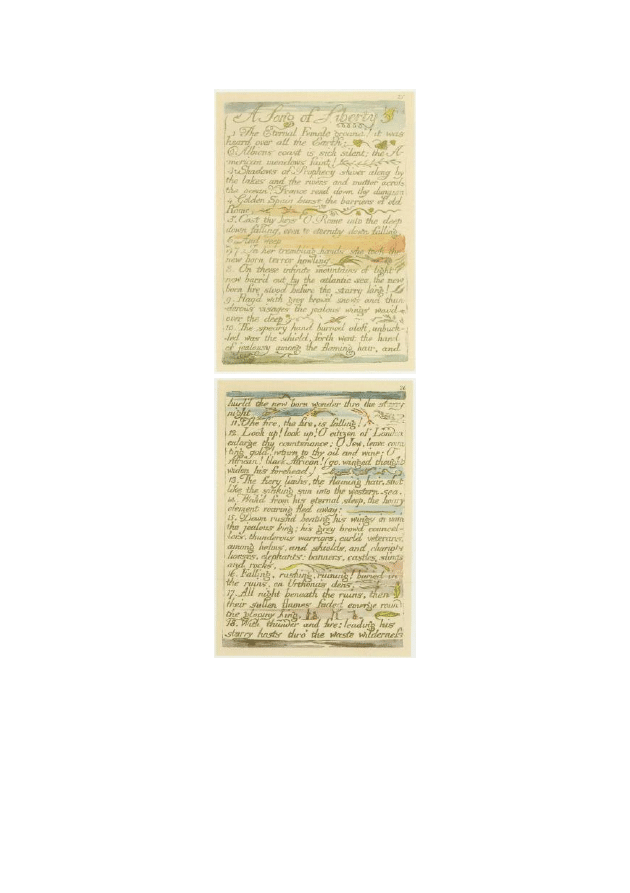 A Song of Liberty
1. The Eternal Female groand! it was
heard over all the Earth:
2. Albions coast is sick silent; the A-
merican meadows faint!
3. Shadows of Prophecy shiver along by
the lakes and the rivers and mutter across
the ocean. France rend down thy dungeon
4. Golden Spain burst the barriers of old
Rome;
5. Cast thy keys O Rome into the deep
down falling, even to eternity down falling,
6. And weep
7. In her trembling hands she took the
new born terror howling
8. On those infinite mountains of light
now barr'd out by the atlantic sea, the new
born fire stood before the starry king!
9. Flag'd with grey brow'd snows and thun-
derous visages the jealous wings wav'd
over the deep
10. The speary hand burned aloft, unbuck-
led was the shield, forth went the hand
of jealousy among the flaming hair, and
hurl'd the new born wonder thro' the starry
night.
11. The fire, the fire, is falling!
12. Look up! look up! O citizen of London
enlarge thy countenance; O Jew, leave coun-
ting gold! return to thy oil and wine; O
African! black African! (go. winged thought
widen his forehead.)
13. The fiery limbs, the flaming hair, shot
like the sinking sun into the western sea.
14. Wak'd from his eternal sleep, the hoary
element roaring fled away:
15. Down rushd beating his wings in vain
the jealous king; his grey brow'd councel-
lors, thunderous warriors, curl'd veterans,
among helms, and shields, and chariots
horses, elephants: banners, castles, slings
and rocks,
16. Falling, rushing, ruining! buried in
the ruins, on Urthona's dens.
17. All night beneath the ruins, then
their sullen flames faded emerge round
the gloomy king,
18. With thunder and fire: leading his
starry hosts thro' the waste wilderness